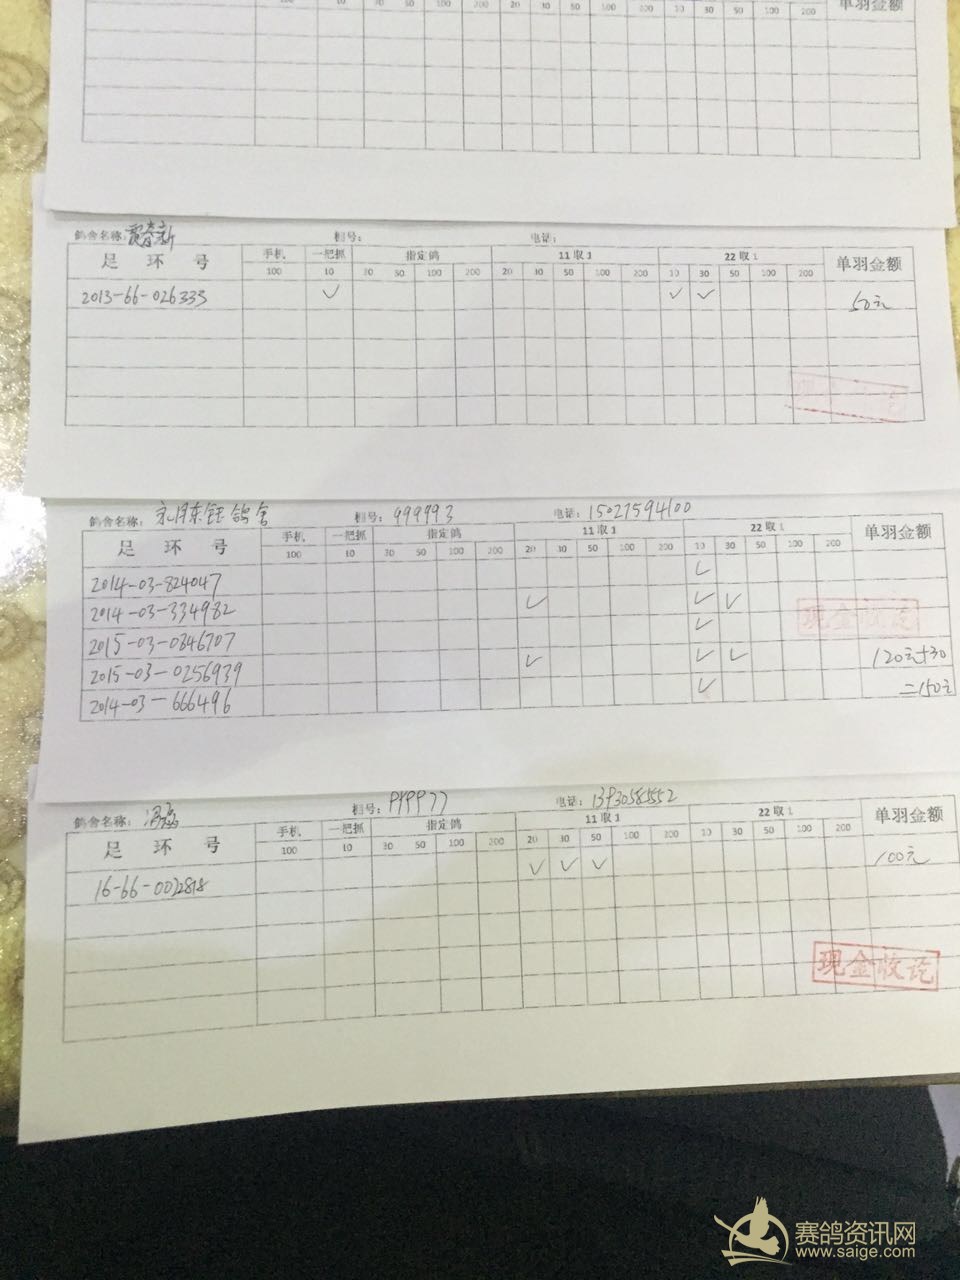 100 10 30 50 100 200 20 30 50 100 200 10 30 50 100 200 单羽金额
鸽舍名称: 春新 棚号: 电话:
足 环 号 手机 一把抓 指定鸽 11取1 22取1 单羽金额
100 10 30 50 100 200 20 30 50 100 200 10 30 50 100 200
2013-66-026333 ✓ ✓ ✓ 50元
鸽舍名称: 东钰鸽舍 棚号: 999993 电话: 15027594100
足 环 号 手机 一把抓 指定鸽 11取1 22取1 单羽金额
100 10 30 50 100 200 20 30 50 100 200 10 30 50 100 200
2014-03-824047 ✓
2014-03-334982 ✓ ✓ ✓
2015-03-0346707 ✓
2015-03-0256939 ✓ ✓ ✓ 120元+30
2014-03-666496 ✓ =150元
现金收讫
鸽舍名称: 冯磊 棚号: 电话:
足 环 号 手机 一把抓 指定鸽 11取1 22取1 单羽金额
100 10 30 50 100 200 20 30 50 100 200 10 30 50 100 200
16-66-0022818 ✓ ✓ ✓ 100元
现金收讫
赛鸽资讯网
www.saige.com